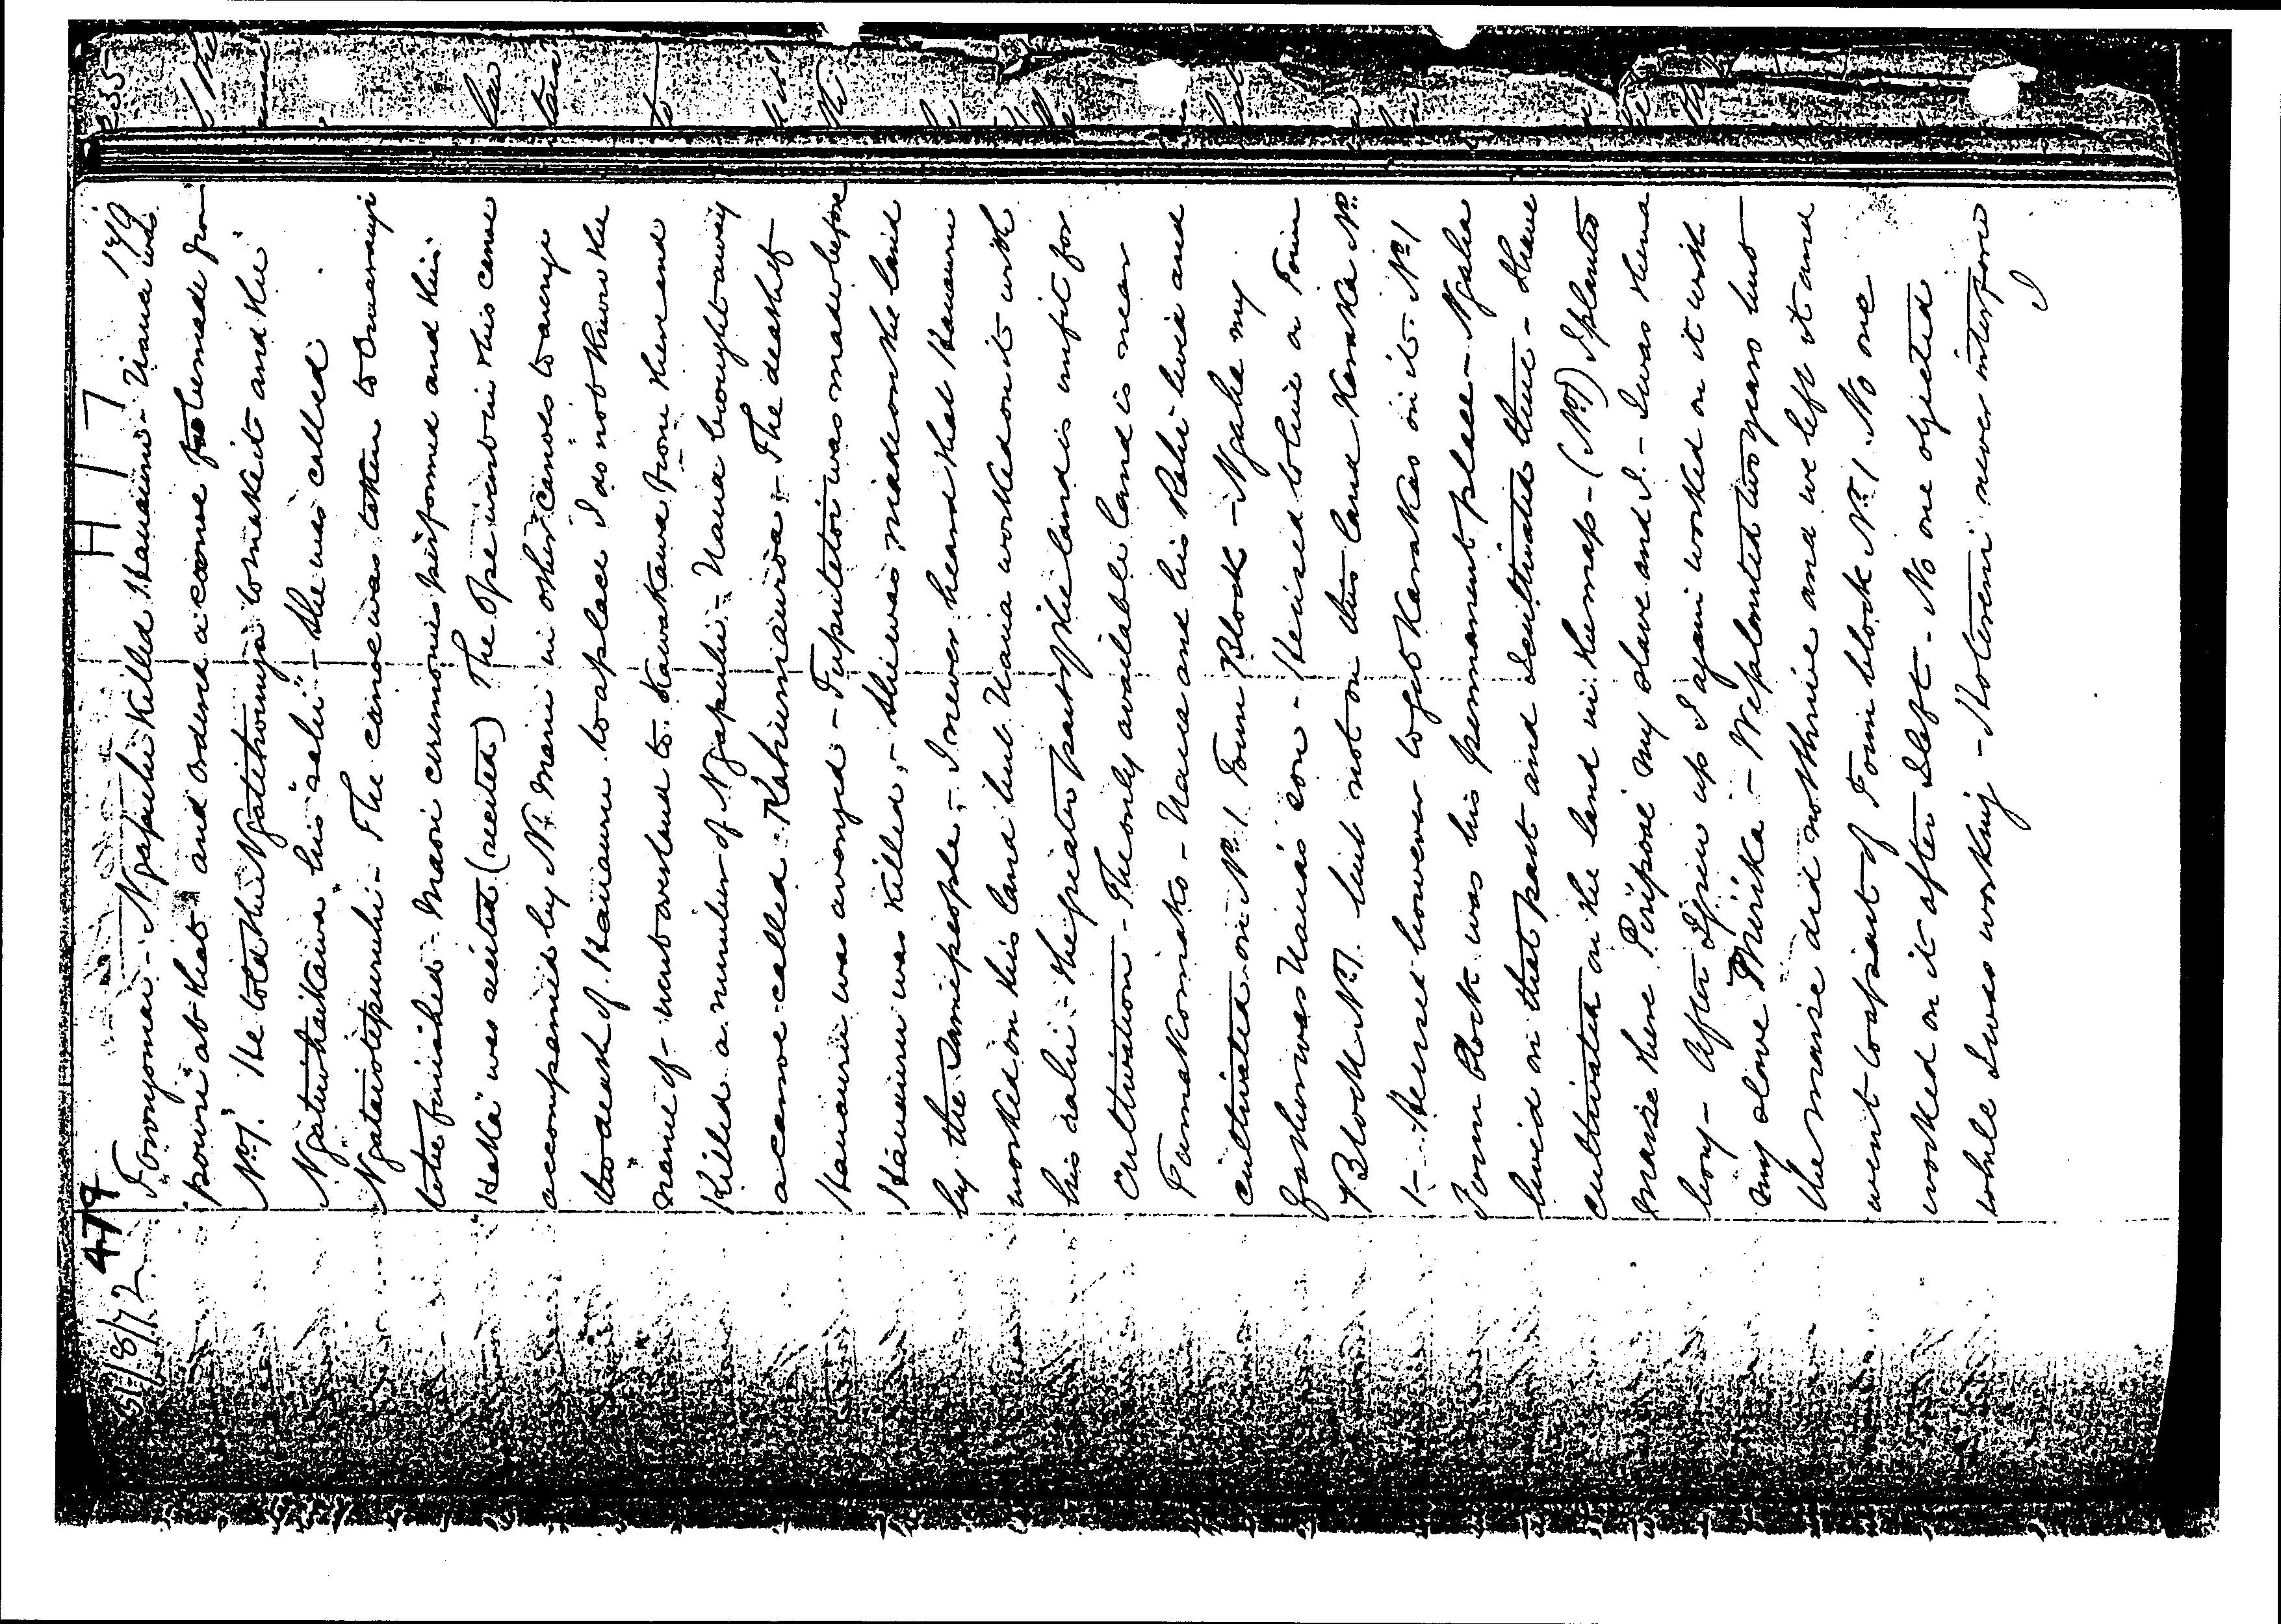 31/8/72 479 H 17 179
Towonganui - Ngapuhi killed Hauauru - Uana was
pouri at that and ordered a canoe to be made from
No 1. He told the Ngatithounga to make it and the
Ngatiwhaikawa his "rahi" - She was called
Ngataiotepuruhi - The canoe was taken to Owarangi
to be finished - Maori ceremonies performed and this
"Haka" was recited (recited) The Ope went in this canoe
accompanied by N. Maru in other canoes to avenge
the death of Hauauru to a place I do not know the
name of - went overland to Kawakawa from there and
killed a number of Ngapuhi - Uana brought away
a canoe called Kahumiauroa - The death of
Hauauru was avenged - Tupuitetoi was made before
Hauauru was killed - She was made on the land
by the same people - I never heard that Hauauru
worked on this land but Uana worked on it with
his rahi - the greater part of the land is unfit for
cultivation - The only available land is near
Pumakomako - Uana and his Rahi lived and
cultivated on No 1 Touin Block - Ngaha my
father was Uana's son - He used to live on Touin
Block No 1 but not on this land Karaka No
1 - He used however to get Karakas on it. No 1
Touin block was his permanent place - Ngaha
lived on that part and I cultivated there - I have
cultivated on the land in the map - (No 1) I planted
maize there Piripoai my slave and I - I was then a
boy - After I grew up I again worked on it with
my slave Mirika - We planted two years but
the maize did not thrive and we left it and
went to part of Touin block No 1. No one
worked on it after I left - No one objected
while I was working - Hotereni never interfered
I